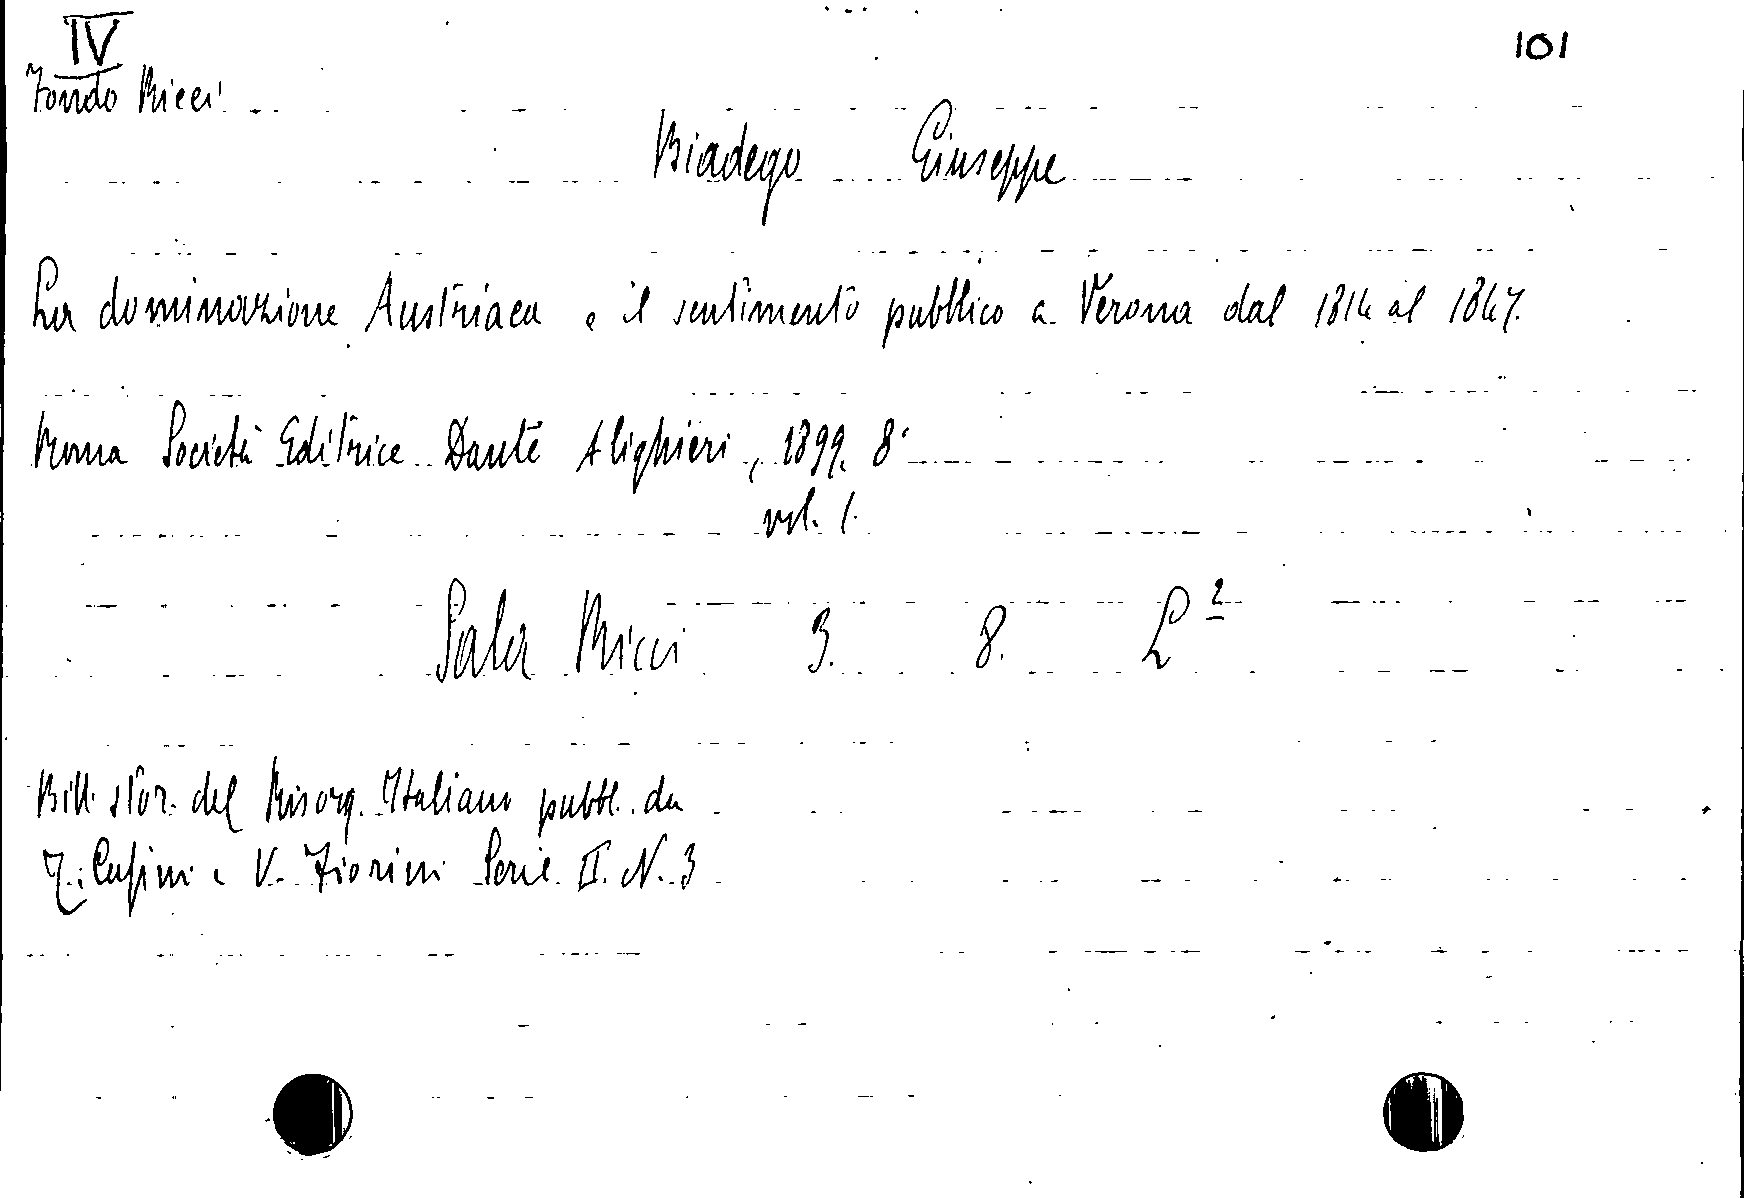 IV
101
Fondo Ricci
Biadego Giuseppe
La dominazione Austriaca e il sentimento pubblico a Verona dal 1814 al 1847.
Roma Società Editrice Dante Alighieri, 1899. 8°
vol. 1.
Sala Ricci 3. 8. L 2
Bibl. stor. del Risorg. Italiano pubbl. da
T. Casini e V. Fiorini Serie II. N. 3